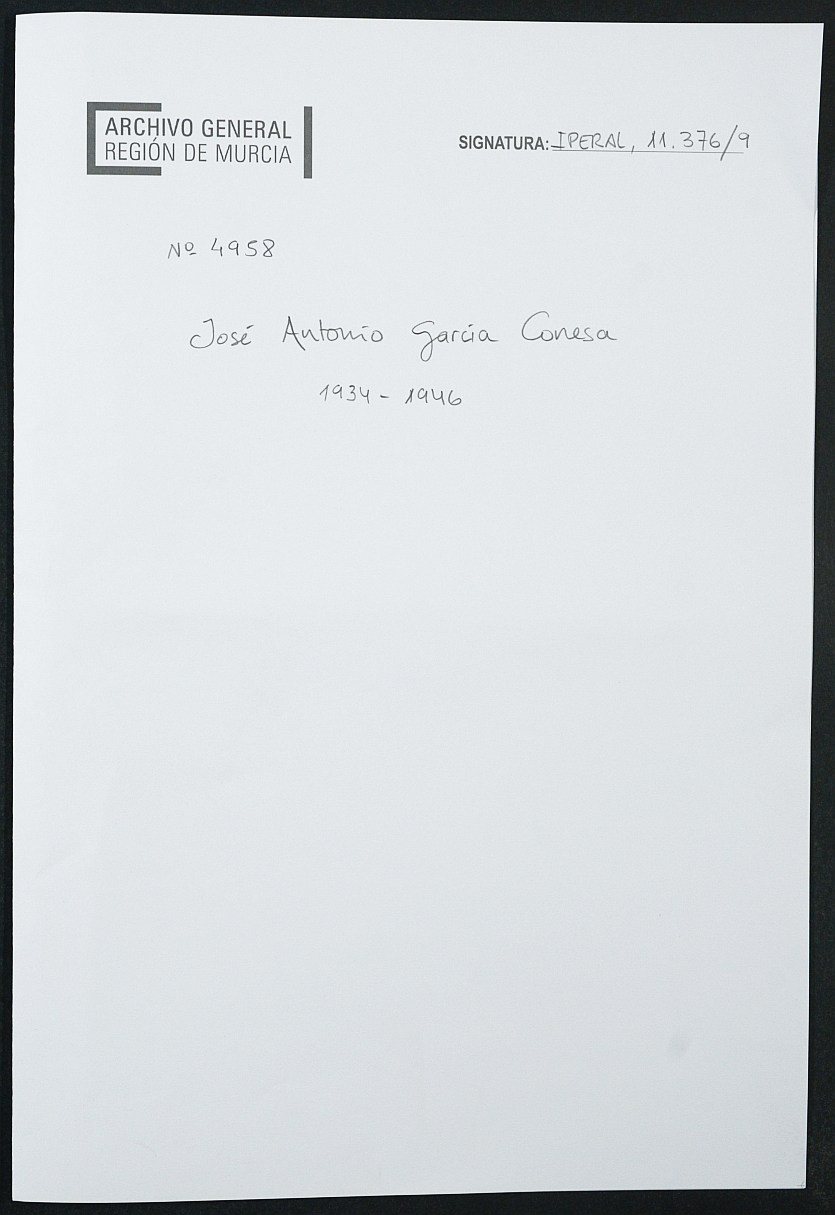 ARCHIVO GENERAL
REGIÓN DE MURCIA
SIGNATURA: IPERAL, 11.376/9
Nº 4958
José Antonio García Conesa
1934 - 1946